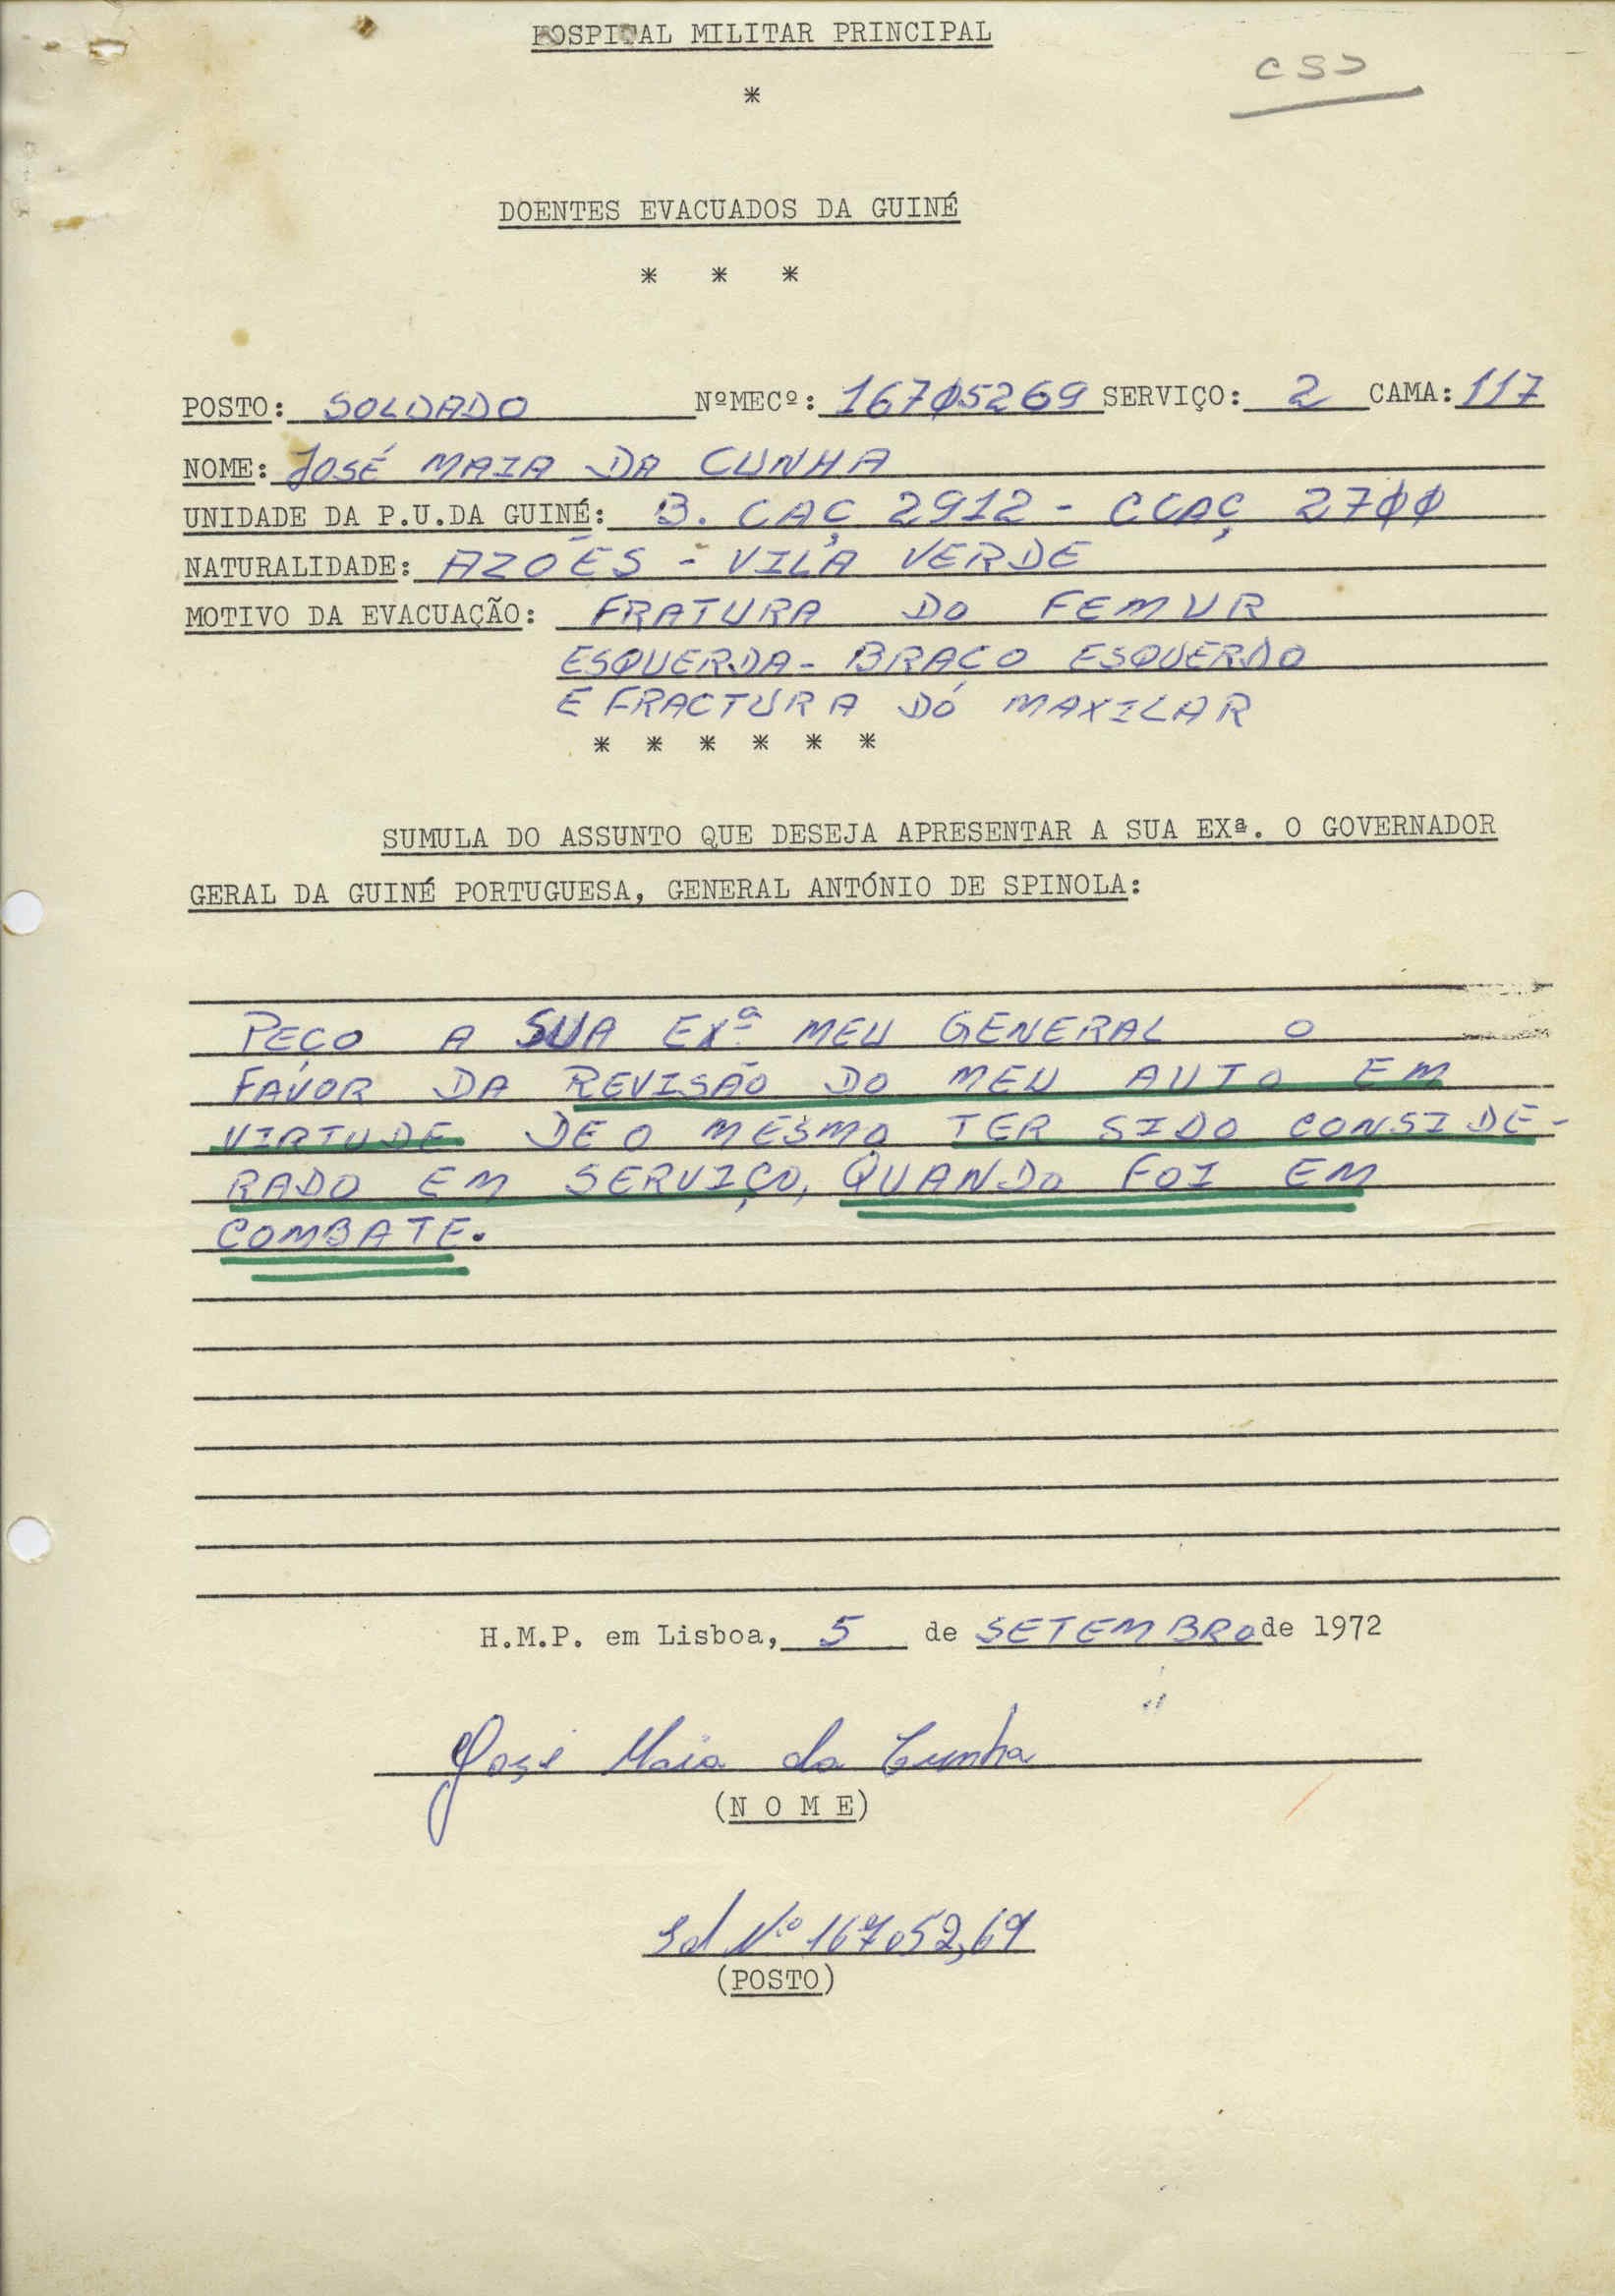 HOSPITAL MILITAR PRINCIPAL
CSD
*
DOENTES EVACUADOS DA GUINÉ
* * *
POSTO: SOLDADO NºMECº: 16705269 SERVIÇO: 2 CAMA: 117
NOME: JOSÉ MAIA DA CUNHA
UNIDADE DA P.U.DA GUINÉ: B. CAÇ 2912 - CCAÇ 2700
NATURALIDADE: AZOÉS - VILA VERDE
MOTIVO DA EVACUAÇÃO: FRATURA DO FEMUR
ESQUERDA - BRAÇO ESQUERDO
E FRACTURA DO MAXILAR
* * * * * *
SUMULA DO ASSUNTO QUE DESEJA APRESENTAR A SUA EXª. O GOVERNADOR
GERAL DA GUINÉ PORTUGUESA, GENERAL ANTÓNIO DE SPINOLA:
PEÇO A SUA EXª MEU GENERAL O
FAVOR DA REVISÃO DO MEU AUTO EM
VIRTUDE DE O MESMO TER SIDO CONSIDE-
RADO EM SERVIÇO, QUANDO FOI EM
COMBATE.
H.M.P. em Lisboa, 5 de SETEMBRO de 1972
José Maia da Cunha
(N O M E)
Sd Nº 167052,69
(POSTO)